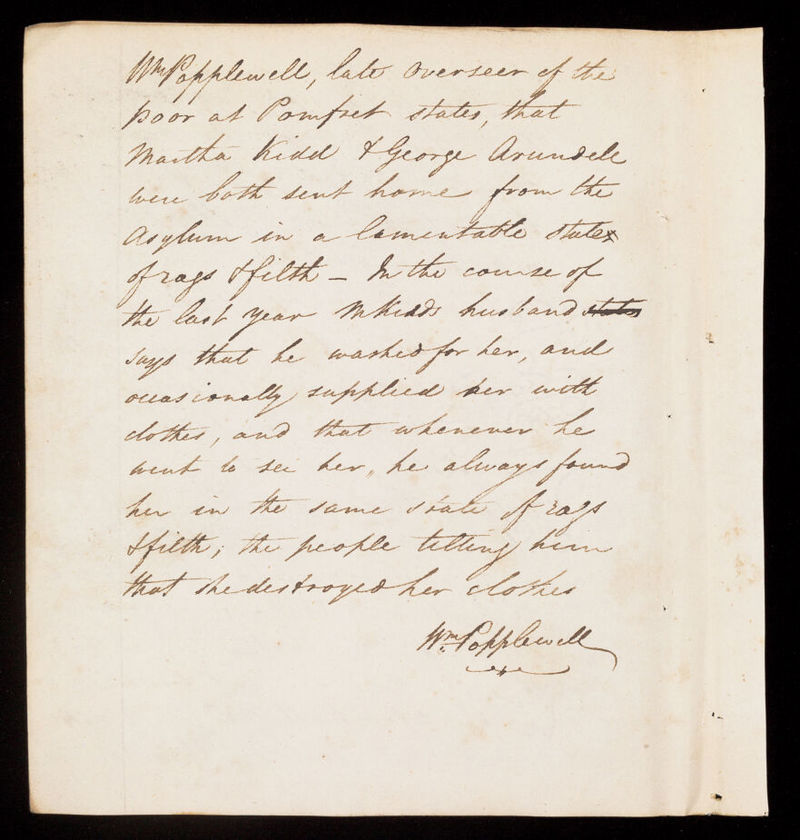 Wm Popplewell, late overseer of the
poor at Pomfret states, that
Martha Kidd & George Arundele
were both sent home from the
Asylum in a lamentable state
of rags & filth – In the course of
the last year M Kidds husband states
says that he washed for her, and
occasionally supplied her with
clothes, and that whenever he
went to see her, he always found
her in the same state of rags
& filth; the people telling him
that she destroyed her clothes
Wm. Popplewell